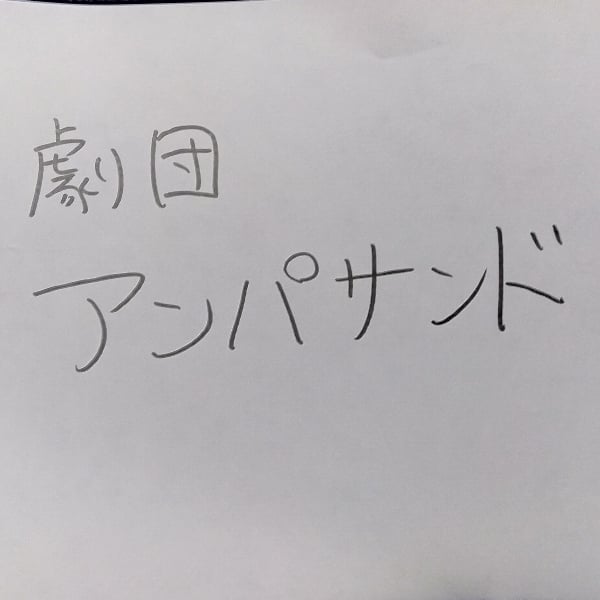 劇団
アンパサンド